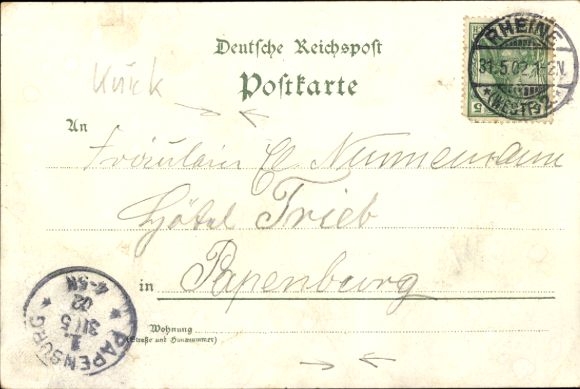 Deutsche Reichspost
Postkarte
Kuck
An
Fräulein El. Nunnemann
Hôtel Trieb
in Papenburg
Wohnung
(Straße und Hausnummer)
RHEINE
31.5.02.1-2V.
* (WESTF) 2 *
5
* PAPENBURG *
1
31/5
02
4-5N